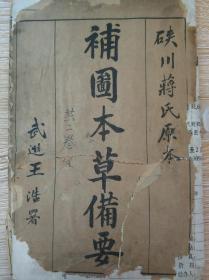 硤川蔣氏原本
補圖本草備要
共二卷
武進王浩署